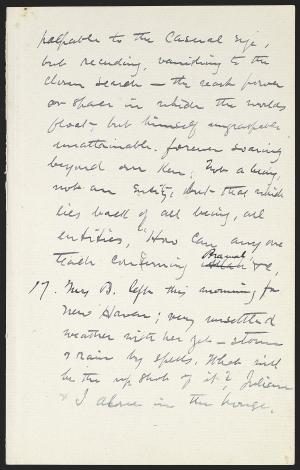 palpable to the casual eye,
but receding, vanishing to the
closer search — the vast power
or space in which the worlds
float, but himself ungraspable
unattainable. forever soaring
beyond our ken; Not a being,
not an entity, but that which
lies back of all being, all
entities, "How can any one
teach concerning Brahma?" &c,
17. Mrs B. left this morning for
New Haven; very unsettled
weather with her yet — storm
& rain by spells. What will
be the up shot of it? Julian
& I alone in the house,